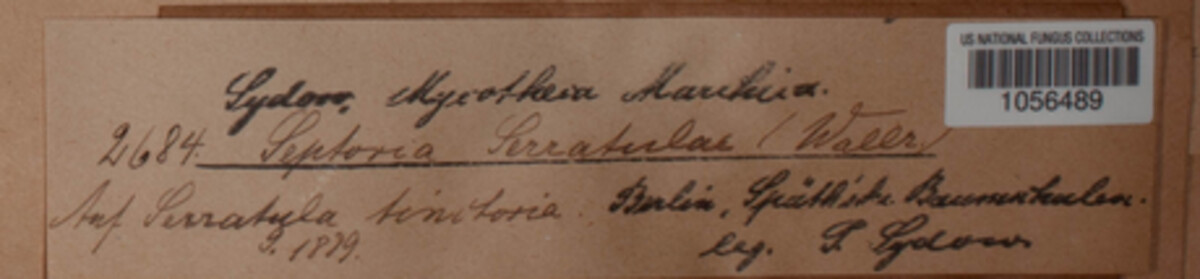 US NATIONAL FUNGUS COLLECTIONS
1056489
Sydow, Mycotheca Marchica.
2684. Septoria Serratulae (Wallr)
Auf Serratula tinctoria. Berlin, Späth'sche Baumschulen.
9. 1889. leg. P. Sydow